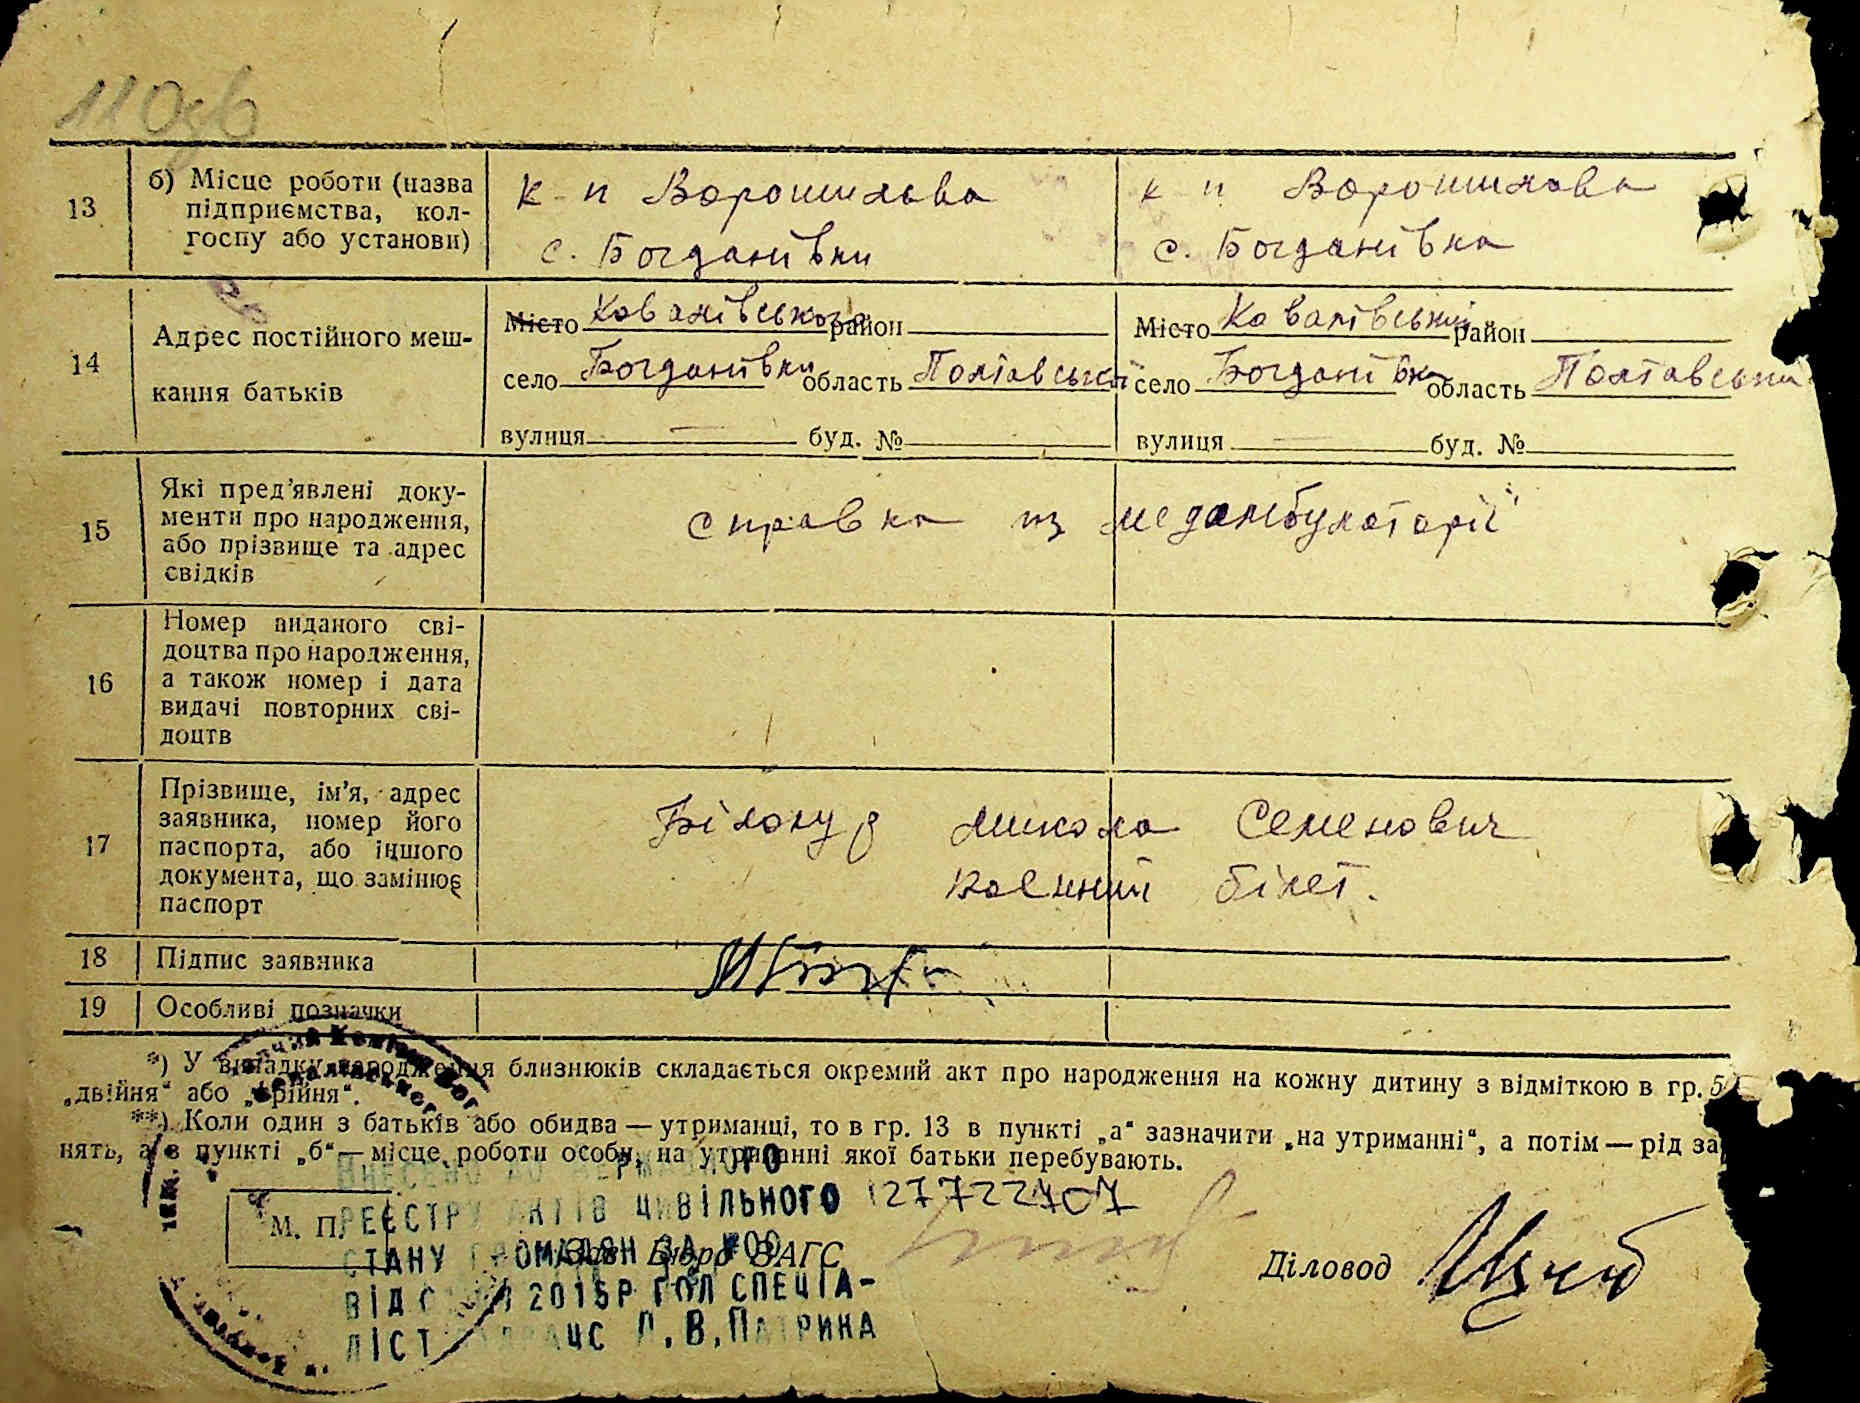 110зв
13
б) Місце роботи (назва
підприємства, кол-
госпу або установи)
к-п Ворошилова
с. Богданівки
к-п Ворошилова
с. Богданівка
14
Адрес постійного меш-
кання батьків
Місто Ковалівського район
село Богданівки область Полтавської
вулиця — буд. №
Місто Ковалівський район
село Богданівка область Полтавська
вулиця — буд. №
15
Які пред’явлені доку-
менти про народження,
або прізвище та адрес
свідків
справка из медамбулаторії
16
Номер виданого сві-
доцтва про народження,
а також номер і дата
видачі повторних сві-
доцтв
17
Прізвище, ім’я, адрес
заявника, номер його
паспорта, або іншого
документа, що замінює
паспорт
Білокур Микола Семенович
военний білет.
18
Підпис заявника
19
Особливі позначки
*) У випадку народження близнюків складається окремий акт про народження на кожну дитину з відміткою в гр. 5
„двійня“ або „трійня“.
**) Коли один з батьків або обидва — утриманці, то в гр. 13 в пункті „а“ зазначити „на утриманні“, а потім — рід за
нять, а в пункті „б“ — місце роботи особи, на утриманні якої батьки перебувають.
ВНЕСЕНО ДО ДЕРЖАВНОГО
РЕЄСТРУ АКТІВ ЦИВІЛЬНОГО
СТАНУ ГРОМАДЯН ЗА №00
127722707
М. П.
Зав. Бюро ЗАГС
Діловод
ВІД 2015Р ГОЛ СПЕЦІА-
ЛІСТ В. ПАТРИНА